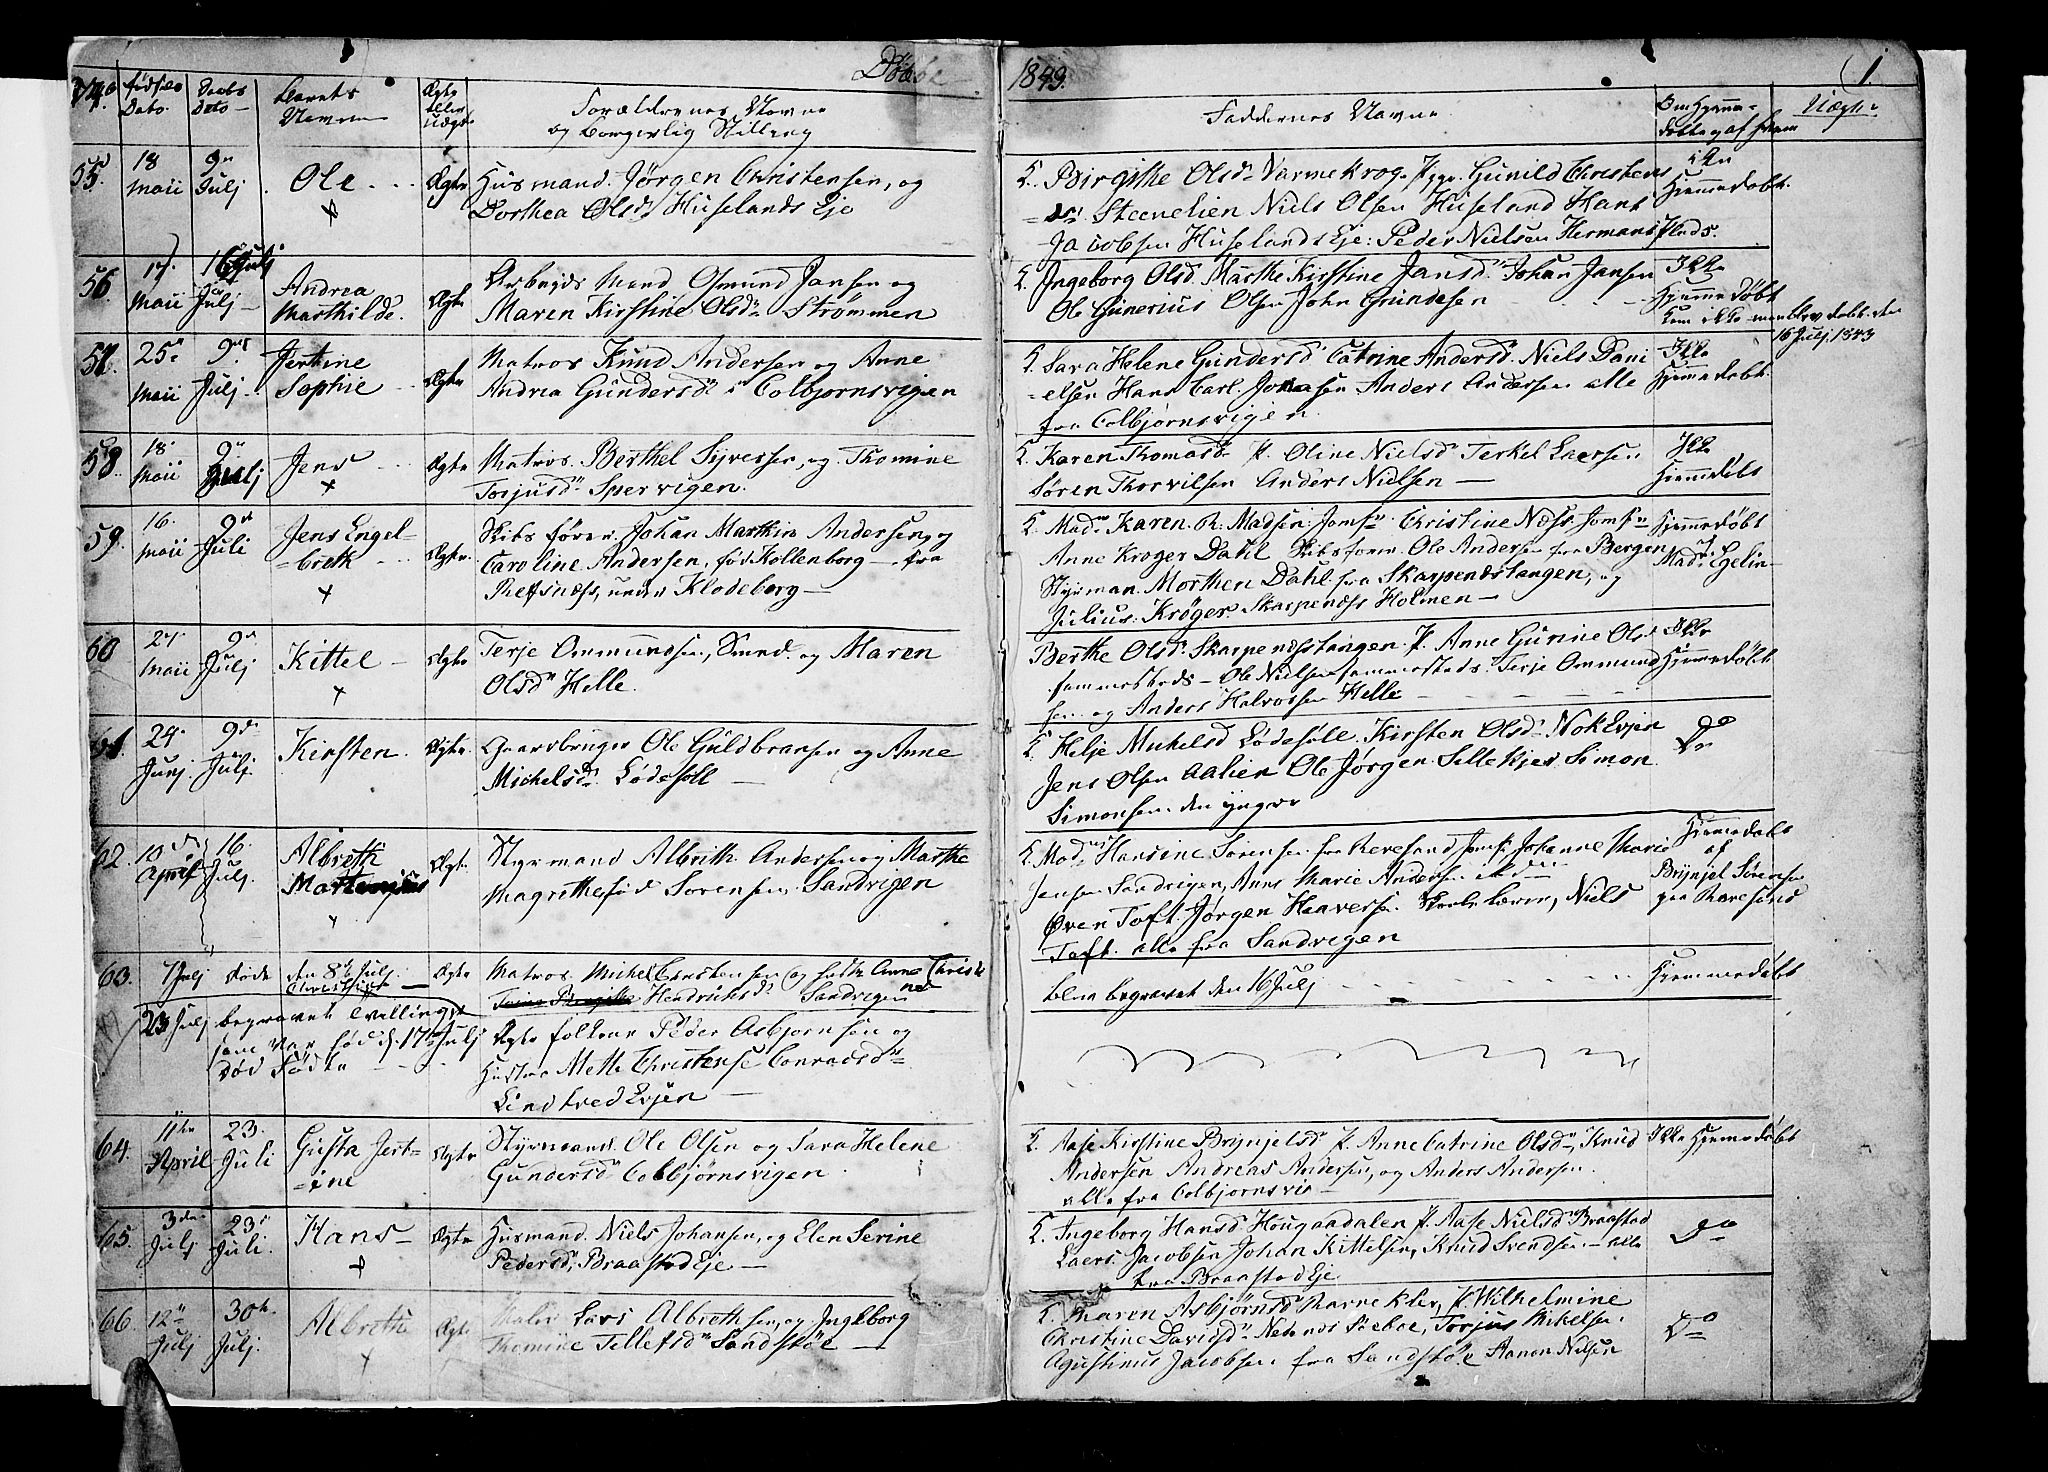 Døbte
1843.
1
No.
Fødsels Dato.
Daabs Dato
Barnets Navne
Ægte eller Uægte
Forældrenes Navne og Borgerlig Stilling
Faddernes Navne
Om Hjemmedøbt og af hvem
55. 18 Maii 9de Julj. Ole Ægte Husmand. Jørgen Christensen, og
Dorthea Olsd. Huselands Eje
Birgithe Olsd. Varmekrog. P. Gunild Christens
Steenelien Niels Olsen Huseland Hans
Jacobsen Huselands Eje: Peder Nielsen Hermans Plads.
Ikke Hjemmedøbt.
56. 17. Maii 16 Julj Andrea Marthilde. Ægte Arbeyds Mand Osmund Jansen og
Maren Kirstine Olsdn Strømmen
Ingeborg Olsd. Marthe Kirstine Jansd. Johan Jansen
Ole Gunerius Olsen John Gundesen
Ikke Hjemmedøbt
Kom ikke men blev døbt den
16 Julj 1843
57. 25de Maii 9de Julj. Jertine Sophie Ægte Matros Knud Andersen og Anne
Andrea Gundersdn i Colbjornsvigen
Sara Helene Gundersd. Catrine Andersd. Niels Dani
elsen Hans Carl. Jonasen Anders Andersen alle
fra Colbjørnsvigen.
Ikke Hjemmedøbt.
58. 18. Maii 9 Julj Jens Ægte Matros. Berthel Syversen, og Thomine
Torjusdn Spervigen.
Karen Thomasd. P. Oline Nielsd Terkel Laersen
Søren Thorvilsen Anders Nielsen
Ikke Hjemmedøbt
59. 16. Maii 9de Juli Jens Engel-
breth Ægte. Skibsfører. Johan Marthin Andersen, og
Caroline Andersen, fød Kollenborg fra
Refsnæss, under Klodeborg
Madm Karen R. Madsen. Jomf. Christine Næss. Jomf.
Anne Kroger Dahl Skibsfører. Ole Andersen fra Bergen
Styrman. Morthen Dahl fra Skarpenæstangen, og
Julius. Krøger. Skarpenæss Holmen
Hjemmedøbt af Mad. Egelin
60 27. Maii 9de Julj. Kittel Ægte Terje Ommundsen, Smed. og Maren
Olsdn Helle.
Berthe Olsd. Skarpenæsstangen. P. Anne Gurine Olsd
sammesteds Ole Nielsen sammesteds. Terje Ommund
sen og Anders Halvorsen Helle
Ikke Hjemmedøbt
61. 24. Junj. 9de Julj. Kirsten. Ægte Gaardbruger Ole Guldbransen og Anne
Michelsd. Lødesøll
Helje Mickelsd Lødesøll. Kirsten Olsd. NokEvjen
Jens Olsen Aalien Ole Jørgen Sellekjer Simon
Simonsen den yngere
Do
62 10de April 16. Julj. Albreth Martenius Ægte. Styrmand Albrith Andersen og Marthe
Magrethe fød Sorensen. Sandvigen
Mad. Hansine Sorensen fra Revesand Jomf. Johanne Marie
Jensen Sandvigen, Anne Marie Andersen
Øven Toft. Jørgen Haaversen. Skolelærer, Niels
Toft. alle fra Sandvigen
Hjemmedøbt af
Brynjel Sørensen
paa Ravesand
63. 7 Julj døde den 8de Julj. Ægte Matros. Michel Christensen og hustr. Anne Christi
ne Hendrichsd. Sandvigen
blev begravet den 16 Julj
Hjemmedøbt
23 Julj begravet tvillinger
som var fød d. 17 Julj
død Fødte
Ægte folkene Peder Asbjornsen og
Hustru Mette Christense Conradsdn
Lindtved Evjen
64. 11te April 23. Juli Gusta Jert-
ine Ægte Styrmand. Ole Olsen og Sara Helene
Gundersdn Colbjørnsvigen
Aase Kirstine Brynjelsd P. Anne Catrine Olsdn, Knud
Andersen Andreas Andersen, og Anders Andersen.
alle fra Colbjornsvig
Ikke Hjemmedøbt
65. 3die Julj 23de Juli. Hans Ægte Husmand. Niels Johansen, og Elen Serine
Pedersd, Braastad Eje
Ingeborg Hansd. Hougaadalen P. Aase Nielsd Braastad
Laers. Jacobsen Johan Kittelsen, Knud Svendsen alle
fra Braastad Eje
Do
66 12te Julj 30te Julj. Albreth Ægte Maler Lars Albrethsen, og Ingeborg
Thomine Tellefsdn Sandstøe
Maren Asbjørnsd. P. Wilhelmine
Christine Davidsdn Nedenes Torjus Mikelsen.
Agustinus Jacobsen fra Sandstøe Aanon Nilsen
Do